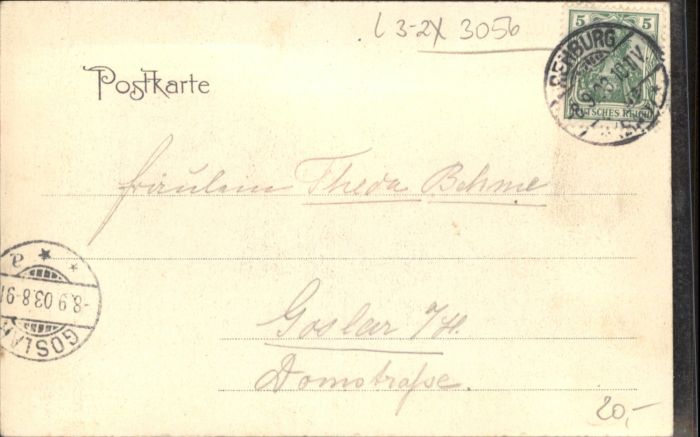 L 3-2X 3056
5 5
DEUTSCHES REICH
REHBURG
8.9.03.
Postkarte
Fräulein Theda Behme
GOSLAR
-8.9.03.8-9
a
Goslar a/H.
Domstraße.
20,-